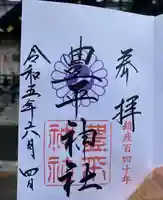 奉拝
鎮座百四十年
豊平神社
豊平神社
令和五年六月四日